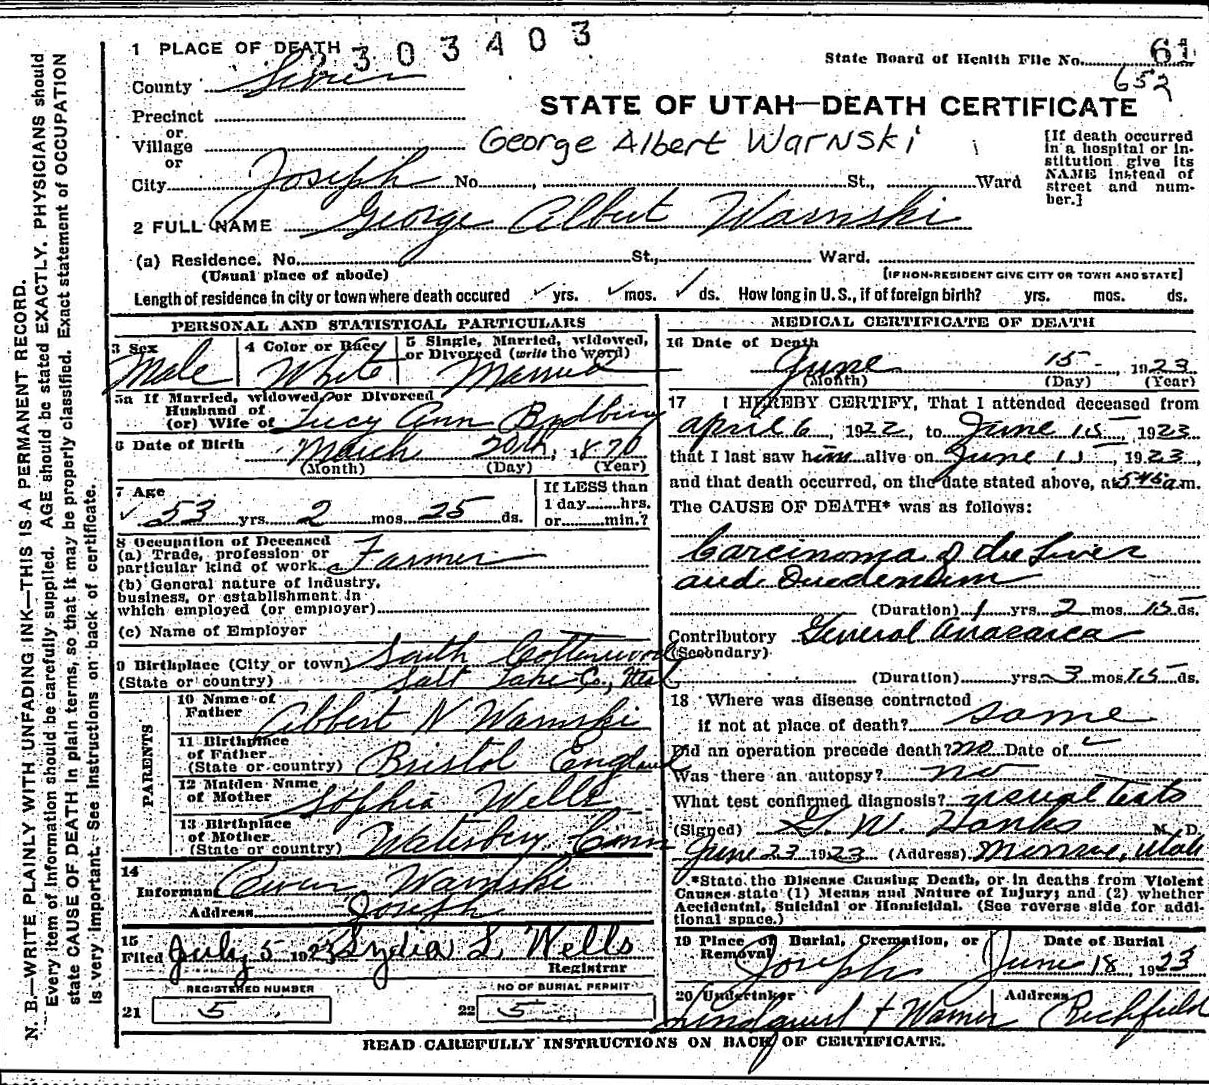 1 PLACE OF DEATH
2303403
State Board of Health File No. 61
652
County Sevier
STATE OF UTAH—DEATH CERTIFICATE
Precinct
or
Village
or
George Albert Warnski
[If death occurred in a hospital or institution give its NAME instead of street and number.]
City Joseph No. , St., Ward
2 FULL NAME George Albert Warnski
(a) Residence. No. St., Ward.
(Usual place of abode)
[IF NON-RESIDENT GIVE CITY OR TOWN AND STATE]
Length of residence in city or town where death occured ✓ yrs. ✓ mos. ✓ ds. How long in U. S., if of foreign birth? yrs. mos. ds.
PERSONAL AND STATISTICAL PARTICULARS
3 Sex
Male
4 Color or Race
White
5 Single, Married, widowed, or Divorced (write the word)
Married
5a If Married, widowed, or Divorced
Husband of
(or) Wife of Lucy Ann
6 Date of Birth March 20th, 1870
(Month) (Day) (Year)
7 Age
✓ 53 yrs. 2 mos. 25 ds.
If LESS than
1 day hrs.
or min.?
8 Occupation of Deceased
(a) Trade, profession or
particular kind of work. Farmer
(b) General nature of Industry,
business, or establishment in
which employed (or employer)
(c) Name of Employer
9 Birthplace (City or town) South Cottonwood
(State or country) Salt Lake Co., Utah
PARENTS
10 Name of
Father Albert N Warnski
11 Birthplace
of Father
(State or country) Bristol England
12 Maiden Name
of Mother Sophia Wells
13 Birthplace
of Mother
(State or country) Waterbery Conn
14
Informant Owen Warnski
Address Joseph
15
Filed July 5 1923 Lydia L. Wells
Registrar
REGISTERED NUMBER
21 5
NO OF BURIAL PERMIT
22 5
MEDICAL CERTIFICATE OF DEATH
16 Date of Death
June 15 , 1923
(Month) (Day) (Year)
17 I HEREBY CERTIFY, That I attended deceased from
April 6 1922, to June 15, 1923
that I last saw him alive on June 15, 1923,
and that death occurred, on the date stated above, at 545 a.m.
The CAUSE OF DEATH* was as follows:
Carcinoma of the Liver
and Duedenum
(Duration) 1 yrs. 2 mos. 15 ds.
Contributory General Anasarca
(Secondary)
(Duration) yrs. 3 mos. 15 ds.
18 Where was disease contracted
if not at place of death? same
Did an operation precede death? no Date of
Was there an autopsy? no
What test confirmed diagnosis? usual tests
(Signed) G. W. Hanks M. D.
June 23 1923 (Address) Monroe, Utah
*State the Disease Causing Death, or in deaths from Violent
Causes state (1) Means and Nature of Injury; and (2) whether
Accidental, Suicidal or Homicidal. (See reverse side for addi-
tional space.)
19 Place of Burial, Cremation, or
Removal Joseph
Date of Burial
June 18, 1923
20 Undertaker
Lindquist + Warner
Address
Richfield
READ CAREFULLY INSTRUCTIONS ON BACK OF CERTIFICATE.
N. B.—WRITE PLAINLY WITH UNFADING INK—THIS IS A PERMANENT RECORD.
Every item of information should be carefully supplied. AGE should be stated EXACTLY. PHYSICIANS should
state CAUSE OF DEATH in plain terms, so that it may be properly classified. Exact statement of OCCUPATION
is very important. See instructions on back of certificate.